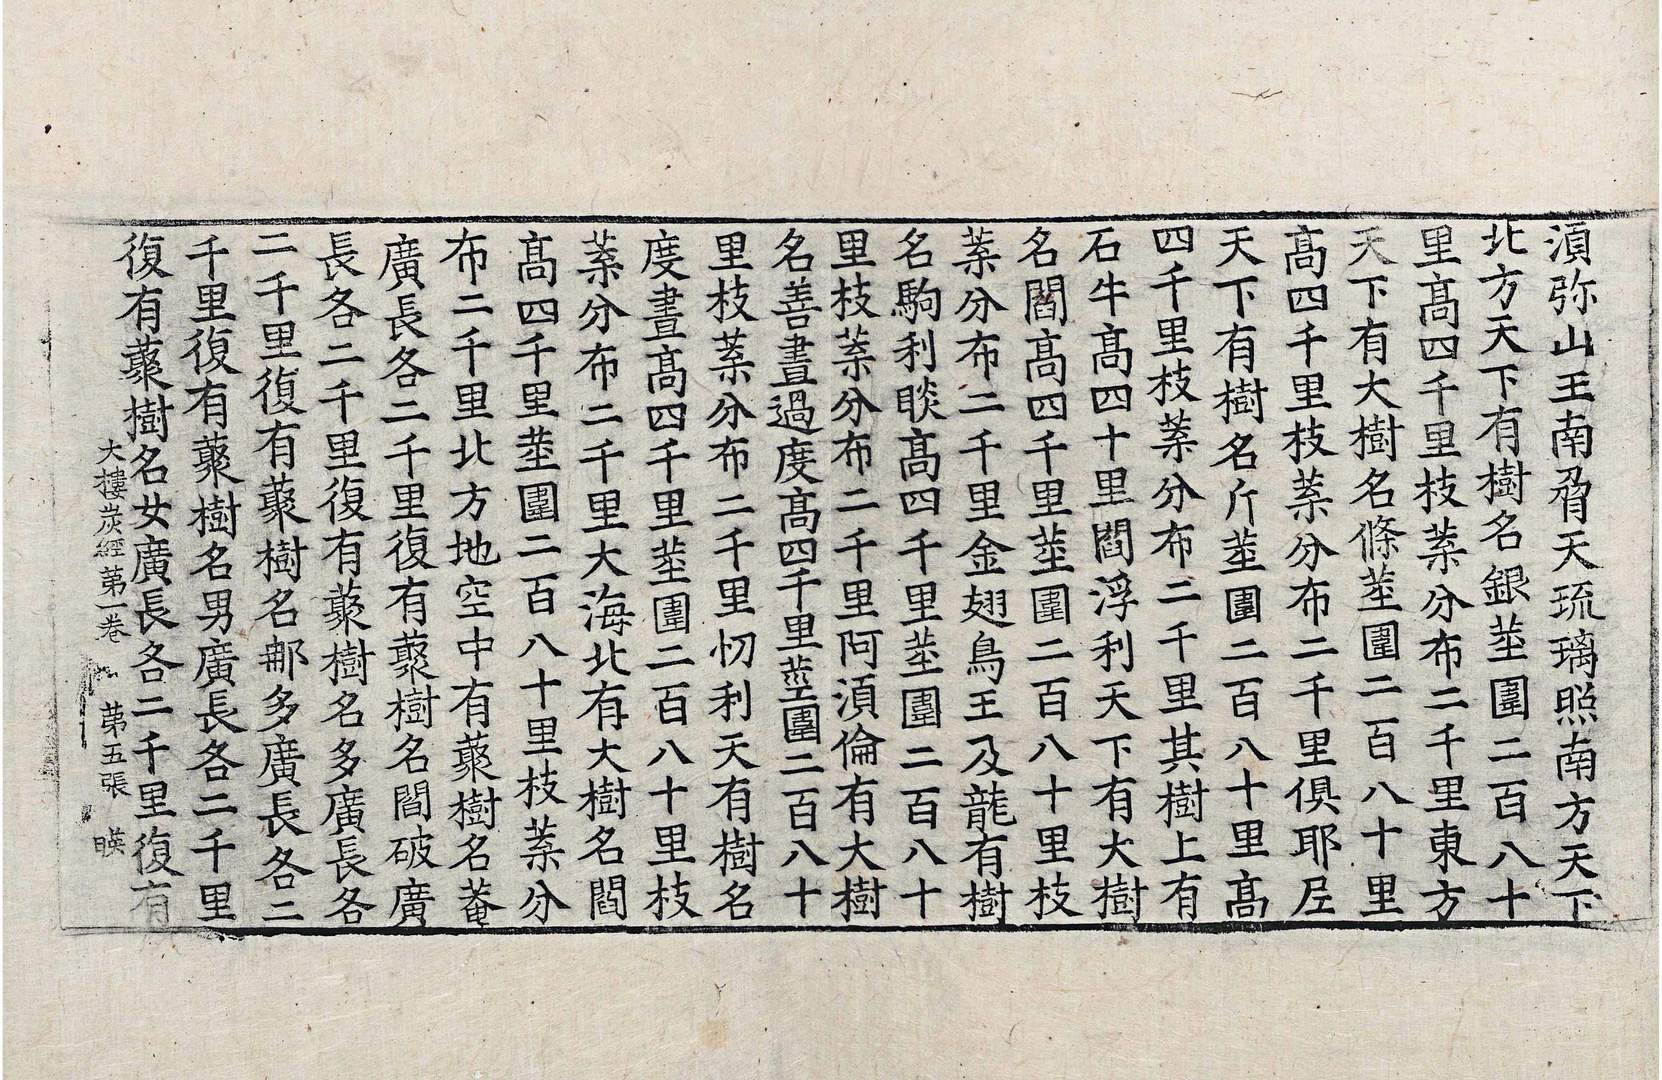 湏弥山王南脅天琉璃照南方天下
北方天下有樹名銀莖圍二百八十
里髙四千里枝葉分布二千里東方
天下有大樹名條莖圍二百八十里
髙四千里枝葉分布二千里俱耶尼
天下有樹名斤莖圍二百八十里髙
四千里枝葉分布二千里其樹上有
石牛髙四十里閻浮利天下有大樹
名閻髙四千里莖圍二百八十里枝
葉分布二千里金翅鳥王及龍有樹
名駒利睒髙四千里莖圍二百八十
里枝葉分布二千里阿湏倫有大樹
名善晝過度髙四千里莖圍二百八十
里枝葉分布二千里忉利天有樹名
度晝髙四千里莖圍二百八十里枝
葉分布二千里大海北有大樹名閻
髙四千里莖圍二百八十里枝葉分
布二千里北方地空中有藂樹名菴
廣長各二千里復有藂樹名閻破廣
長各二千里復有藂樹名多廣長各
二千里復有藂樹名䣋多廣長各二
千里復有藂樹名男廣長各二千里
復有藂樹名女廣長各二千里復有
大樓炭經第一卷 第五張 暎